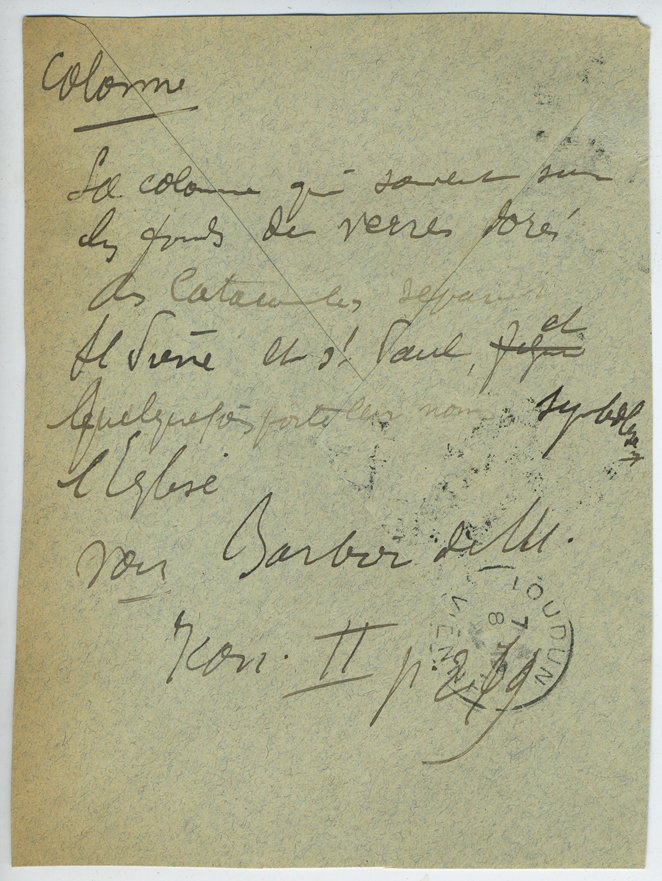 Colonne
La colonne qui souvent sur
les fonds de verres dorés
des Catacombes separant
St Pierre et St Paul, et
quelquefois porte leur nom, symbolise
l'Eglise
voir Barbier de M.
Icon. II p 269
LOUDUN
VIENNE
7
8